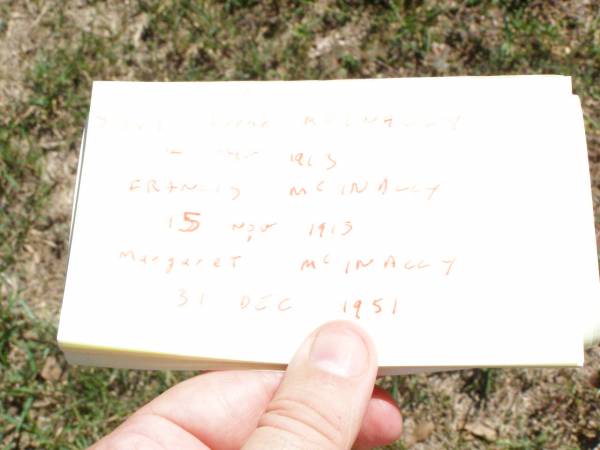 McINALLY
1913
FRANCIS McINALLY
15 NOV 1913
Margaret McINALLY
31 DEC 1951